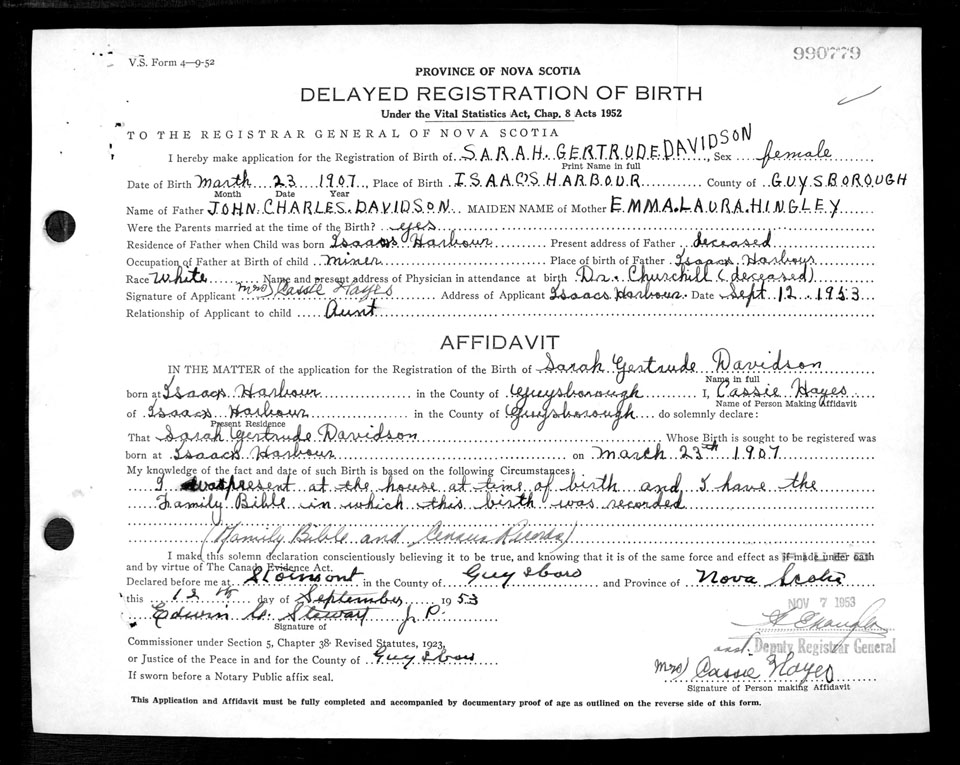 990779
V.S. Form 4—9-52
PROVINCE OF NOVA SCOTIA
DELAYED REGISTRATION OF BIRTH
Under the Vital Statistics Act, Chap. 8 Acts 1952
TO THE REGISTRAR GENERAL OF NOVA SCOTIA
I hereby make application for the Registration of Birth of SARAH GERTRUDE DAVIDSON, Sex female
Print Name in full
Date of Birth March 23 1907, Place of Birth ISAACS HARBOUR County of GUYSBOROUGH
Month Date Year
Name of Father JOHN CHARLES DAVIDSON MAIDEN NAME of Mother EMMA LAURA HINGLEY
Were the Parents married at the time of the Birth? yes
Residence of Father when Child was born Isaacs Harbour Present address of Father deceased
Occupation of Father at Birth of child miner Place of birth of Father Isaacs Harbour
Race White Name and present address of Physician in attendance at birth Dr. Churchill (deceased)
Signature of Applicant (Mrs) Cassie Hayes Address of Applicant Isaacs Harbour. Date Sept 12 1953
Relationship of Applicant to child Aunt
AFFIDAVIT
IN THE MATTER of the application for the Registration of the Birth of Sarah Gertrude Davidson
Name in full
born at Isaacs Harbour in the County of Guysborough I, Cassie Hayes
Name of Person Making Affidavit
of Isaacs Harbour in the County of Guysborough do solemnly declare:
Present Residence
That Sarah Gertrude Davidson Whose Birth is sought to be registered was
born at Isaacs Harbour on March 23rd 1907
My knowledge of the fact and date of such Birth is based on the following Circumstances:
I was present at the house at time of birth and I have the
Family Bible in which this birth was recorded
(Family Bible and Census Records)
I make this solemn declaration conscientiously believing it to be true, and knowing that it is of the same force and effect as if made under oath
and by virtue of The Canada Evidence Act.
Declared before me at Stormont in the County of Guysboro and Province of Nova Scotia
this 12th day of September 1953
Edwin C. Stewart J.P.
Signature of
NOV 7 1953
Commissioner under Section 5, Chapter 38 Revised Statutes, 1923,
asst. Deputy Registrar General
or Justice of the Peace in and for the County of Guysboro
(Mrs) Cassie Hayes
If sworn before a Notary Public affix seal.
Signature of Person making Affidavit
This Application and Affidavit must be fully completed and accompanied by documentary proof of age as outlined on the reverse side of this form.